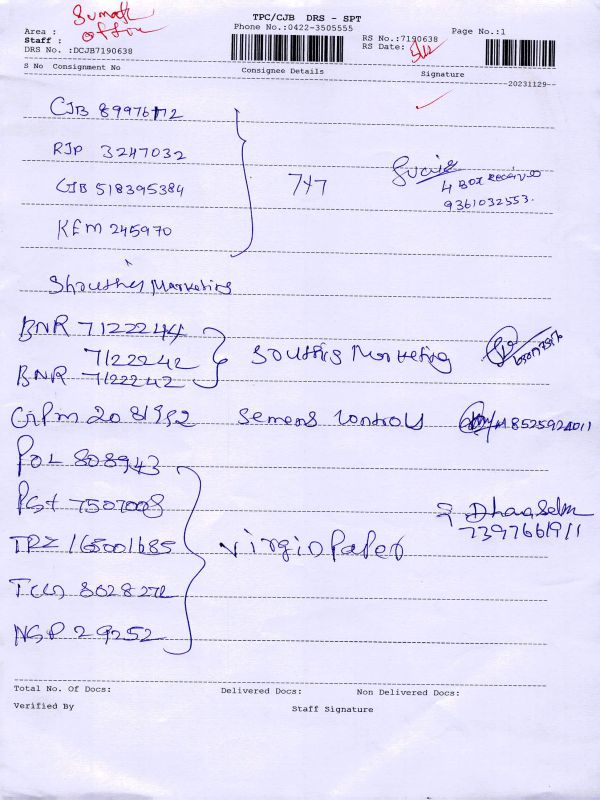 TPC/CJB DRS - SPT
Phone No.:0422-3505555
Area :
Staff :
DRS No. :DCJB7190638
RS No.:7190638
RS Date:
Page No.:1
S No Consignment No Consignee Details Signature
20231129
CJB 89976172
RJP 3247032
CJB 518395384
KEM 245970
7+7
4 Box Received
9361032553.
Marketing
BNR 7122244
7122242
BNR 7122242
Southis Marketing
Semens Controls
8525924011
POL 808943
PGT 7507008
TPZ 165001685
8028272
NGP 29252
Virgio Paper
7397661911
Total No. Of Docs: Delivered Docs: Non Delivered Docs:
Verified By Staff Signature